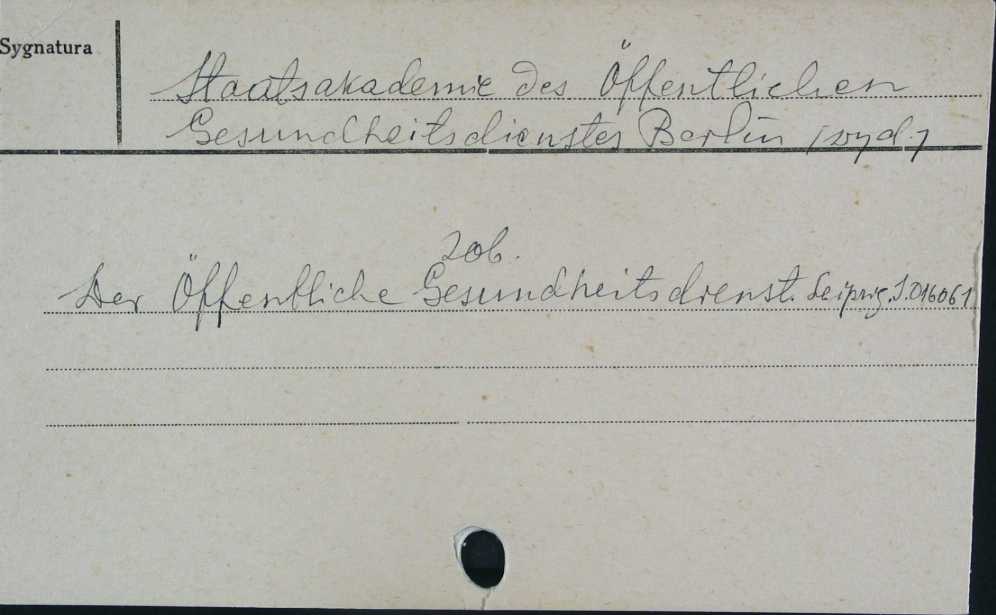 Sygnatura
Staatsakademie des Öffentlichen
Gesundheitsdienstes Berlin /wyd./
zob.
Der Öffentliche Gesundheitsdienst. Leipzig. S.016061